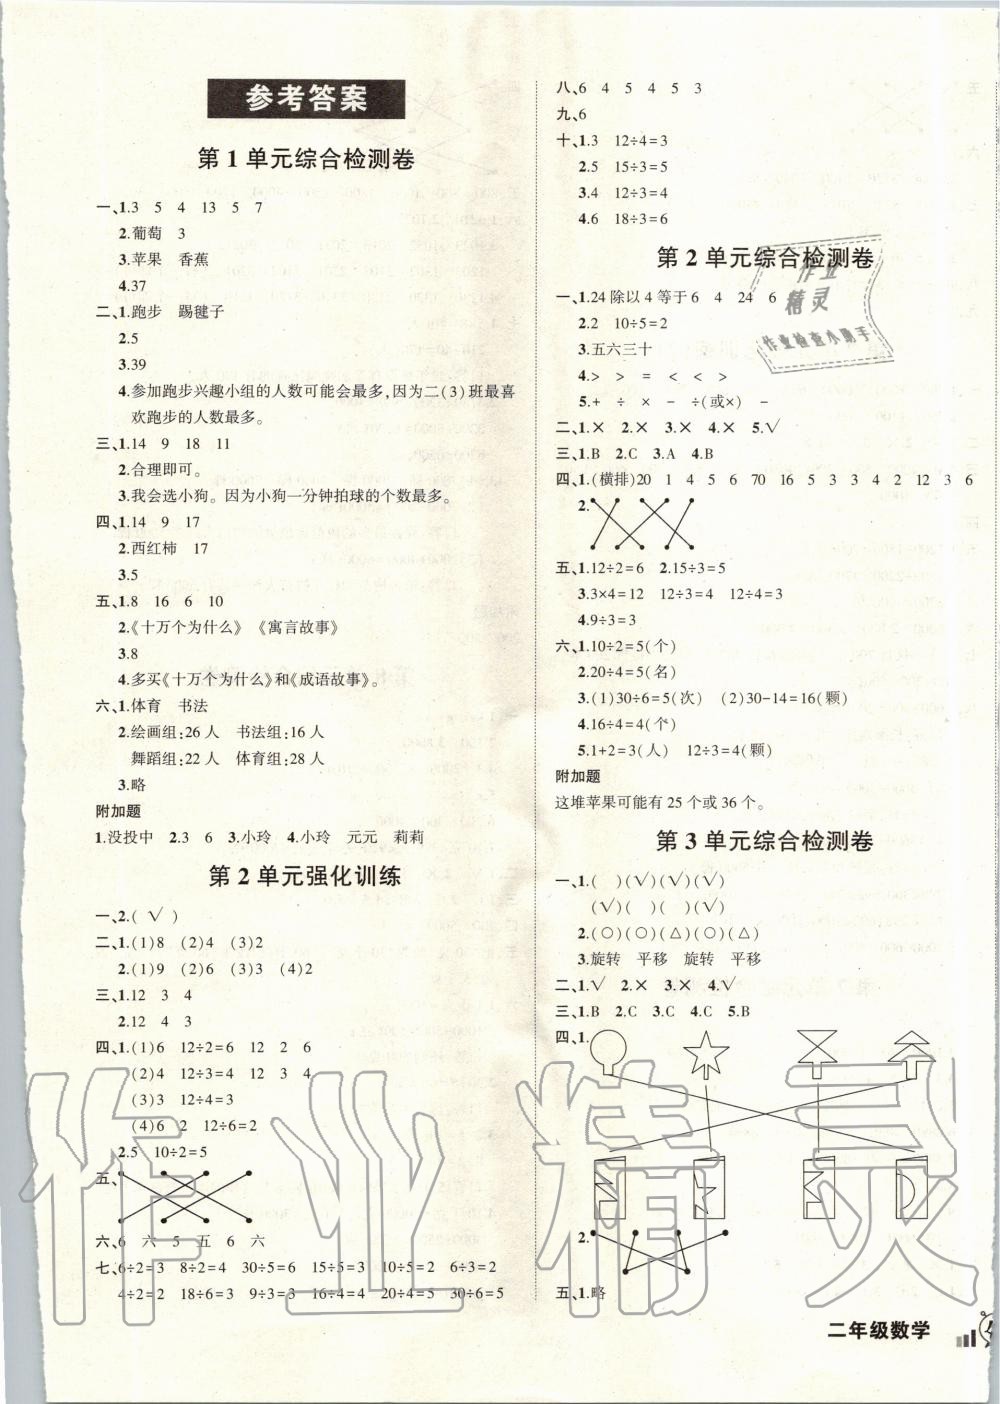 参考答案
第1单元综合检测卷
一、1.3 5 4 13 5 7
2.葡萄 3
3.苹果 香蕉
4.37
二、1.跑步 踢毽子
2.5
3.39
4.参加跑步兴趣小组的人数可能会最多,因为二(3)班最喜
欢跑步的人数最多。
三、1.14 9 18 11
2.合理即可。
3.我会选小狗。因为小狗一分钟拍球的个数最多。
四、1.14 9 17
2.西红柿 17
3.5
五、1.8 16 6 10
2.《十万个为什么》 《寓言故事》
3.8
4.多买《十万个为什么》和《成语故事》。
六、1.体育 书法
2.绘画组:26人 书法组:16人
舞蹈组:22人 体育组:28人
3.略
附加题
1.没投中 2.3 6 3.小玲 4.小玲 元元 莉莉
第2单元强化训练
一、2.( √ )
二、1.(1)8 (2)4 (3)2
2.(1)9 (2)6 (3)3 (4)2
三、1.12 3 4
2.12 4 3
四、1.(1)6 12÷2=6 12 2 6
(2)4 12÷3=4 12 3 4
(3)3 12÷4=3
(4)6 2 12÷6=2
2.5 10÷2=5
五、
六、6 六 5 五 6 六
七、6÷2=3 8÷2=4 30÷5=6 15÷5=3 10÷5=2 6÷3=2
4÷2=2 18÷6=3 9÷3=3 16÷4=4 20÷4=5 30÷6=5
八、6 4 5 4 5 3
九、6
十、1.3 12÷4=3
2.5 15÷3=5
3.4 12÷3=4
4.6 18÷3=6
第2单元综合检测卷
一、1.24除以4等于6 4 24 6
2.2 10÷5=2
3.五六三十
4.> > = < < >
5.+ ÷ × - ÷(或×) -
二、1.× 2.× 3.× 4.× 5.√
三、1.B 2.C 3.A 4.B
四、1.(横排)20 1 4 5 6 70 16 5 3 3 4 2 12 3 6
2.
五、1.12÷2=6 2.15÷3=5
3.3×4=12 12÷3=4 12÷4=3
4.9÷3=3
六、1.10÷2=5(个)
2.20÷4=5(名)
3.(1)30÷6=5(次) (2)30-14=16(颗)
4.16÷4=4(个)
5.1+2=3(人) 12÷3=4(颗)
附加题
这堆苹果可能有25个或36个。
第3单元综合检测卷
一、1.( )(√)(√)(√)
(√)( )( )(√)
2.(○)(○)(△)(○)(△)
3.旋转 平移 旋转 平移
二、1.√ 2.× 3.× 4.√
三、1.B 2.C 3.C 4.C 5.B
四、1.
2.
五、1.略
二年级数学
作业
精灵
作业检查小助手
作业精灵